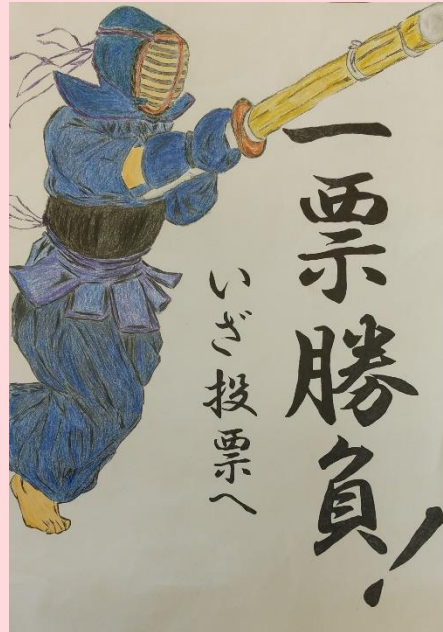 一票勝負！
いざ投票へ